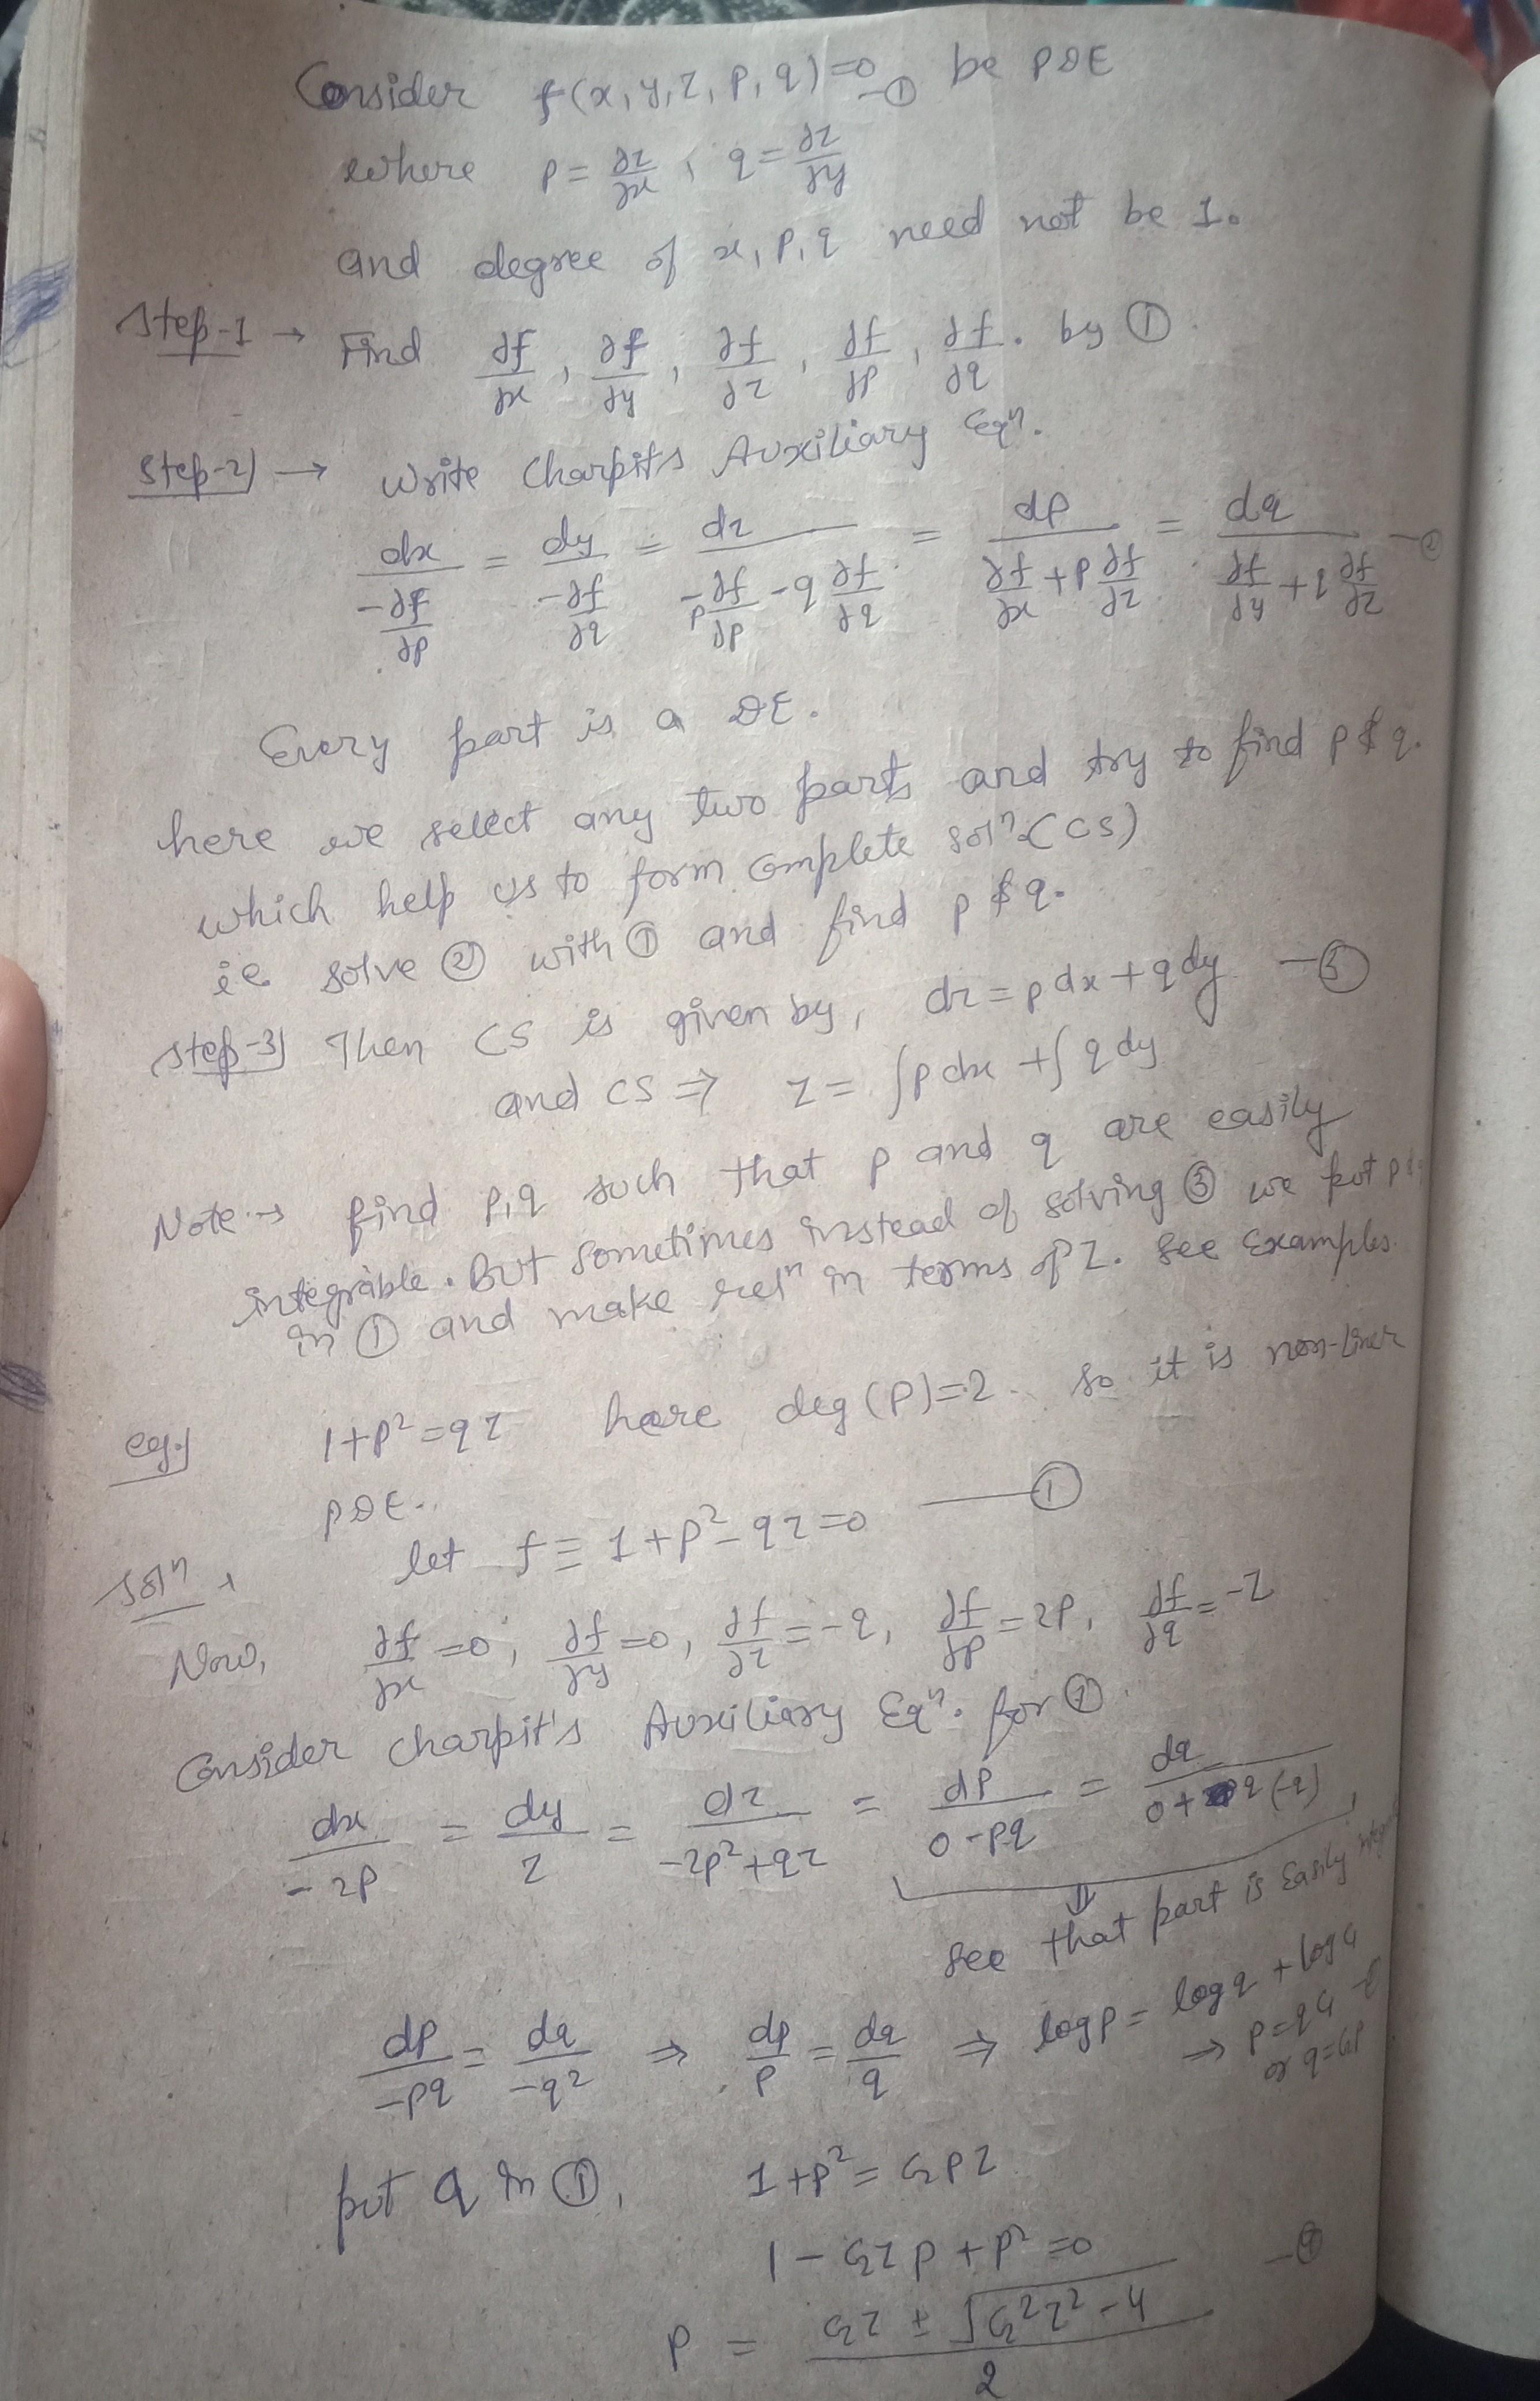 Consider f(x,y,z,p,q)=0 —① be PDE
where p = ∂z/∂x , q = ∂z/∂y
and degree of x, p, q need not be 1.
Step-1 → Find ∂f/∂x , ∂f/∂y , ∂f/∂z , ∂f/∂p , ∂f/∂q . by ①.
Step-2) → Write Charpits Auxiliary Eqⁿ.
dx/(-∂f/∂p) = dy/(-∂f/∂q) = dz/(-p ∂f/∂p - q ∂f/∂q) = dp/(∂f/∂x + p ∂f/∂z) = dq/(∂f/∂y + q ∂f/∂z) —②
Every part is a DE.
here we select any two parts and try to find p & q.
which help us to form complete solⁿ (CS)
ie solve ② with ① and find p & q.
Step-3) Then CS is given by, dz = p dx + q dy —③
and CS ⇒ z = ∫p dx + ∫q dy
Note → find p,q such that p and q are easily
integrable. But sometimes instead of solving ③ we put p
in ① and make relⁿ in terms of z. See Examples.
eg.) 1+p² = qz here deg(p)=2. So it is non-liner
PDE.
Solⁿ, let f ≡ 1+p²-qz=0 —①
Now, ∂f/∂x = 0, ∂f/∂y = 0, ∂f/∂z = -q, ∂f/∂p = 2p, ∂f/∂q = -z
Consider charpit's Auxiliary Eqⁿ. for ①.
dx/-2p = dy/z = dz/(-2p²+qz) = dp/(0-pq) = dq/(0+q(-q))
⇓
see that part is easily
dp/-pq = dq/-q² ⇒ dp/p = dq/q ⇒ log p = log q + log c₁
⇒ p = qc₁
or q = c₂p
put q in ①, 1+p² = c₂pz
1 - c₂zp + p² = 0
p = (c₂z ± √(c₂²z²-4))/2 —④